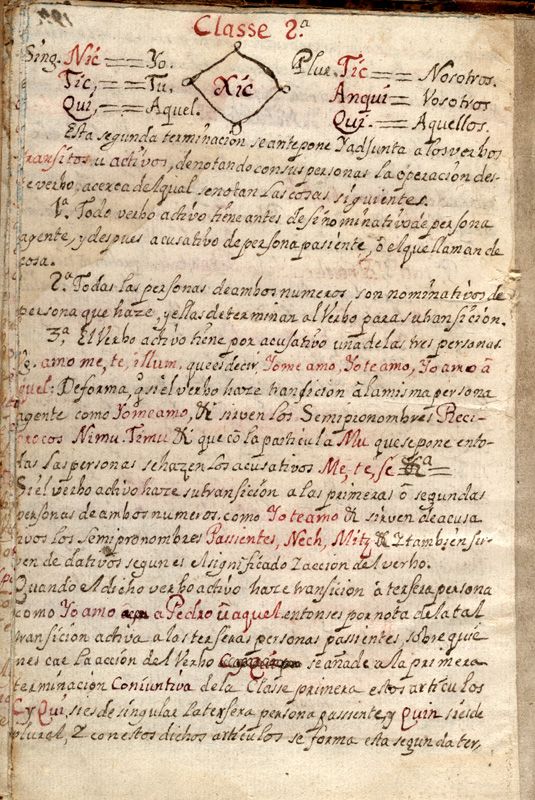 Classe 2.ª
Sing. Nic == Yo. Plur. Tic == Nosotros.
Tic, == Tu. Xic Anqui = Vosotros
Qui, == Aquel. Qui. == Aquellos.
Esta segunda terminacion se antepone y adjunta a los verbos
transitos, u activos, denotando con sus personas la operacion des-
te verbo, acerca del qual se notan las cosas siguientes.
1ª. Todo verbo activo tiene antes de si nominativo de persona
agente, y despues acusativo de persona pasiente, ó el que llaman de
cosa.
2ª. Todas las personas de ambos numeros son nominativos de
persona que haze, y ellas determinan al Verbo para su transicion.
3.ª El Verbo activo tiene por acusativo una de las tres personas
amo me, te, illum, que es decir Yo me amo, Yo te amo, Yo amo ã
quel: De forma, q̃ si el verbo haze transicion â la misma persona
agente como Yo me amo, & sirven los Semipronombres Reci-
procos Nimu. Timu & que cõ la particula Mu que se pone en to-
das las personas se hazen los acusativos Me, te, se
Si el verbo activo haze su transicion a las primeras ô segundas
personas de ambos numeros, como Yo te amo & sirven de acusa
tivos los Semipronombres Passientes, Nech, Mitz & Z tambien sir-
ven de dativos segun es el significado Z accion del verbo.
Quando el dicho verbo activo haze transicion â tersera persona
como Yo amo a Pedro û aquel entonses por nota de la tal
transicion activa a las terseras personas passientes, sobre quie
nes cae la acción del Verbo se añade a la primera
terminacion Coniuntiva de la Classe primera estos articulos
C y Qui, si es de singular la tersera persona passiente, y Quin si es de
plural, Z con estos dichos articulos se forma esta segunda ter,